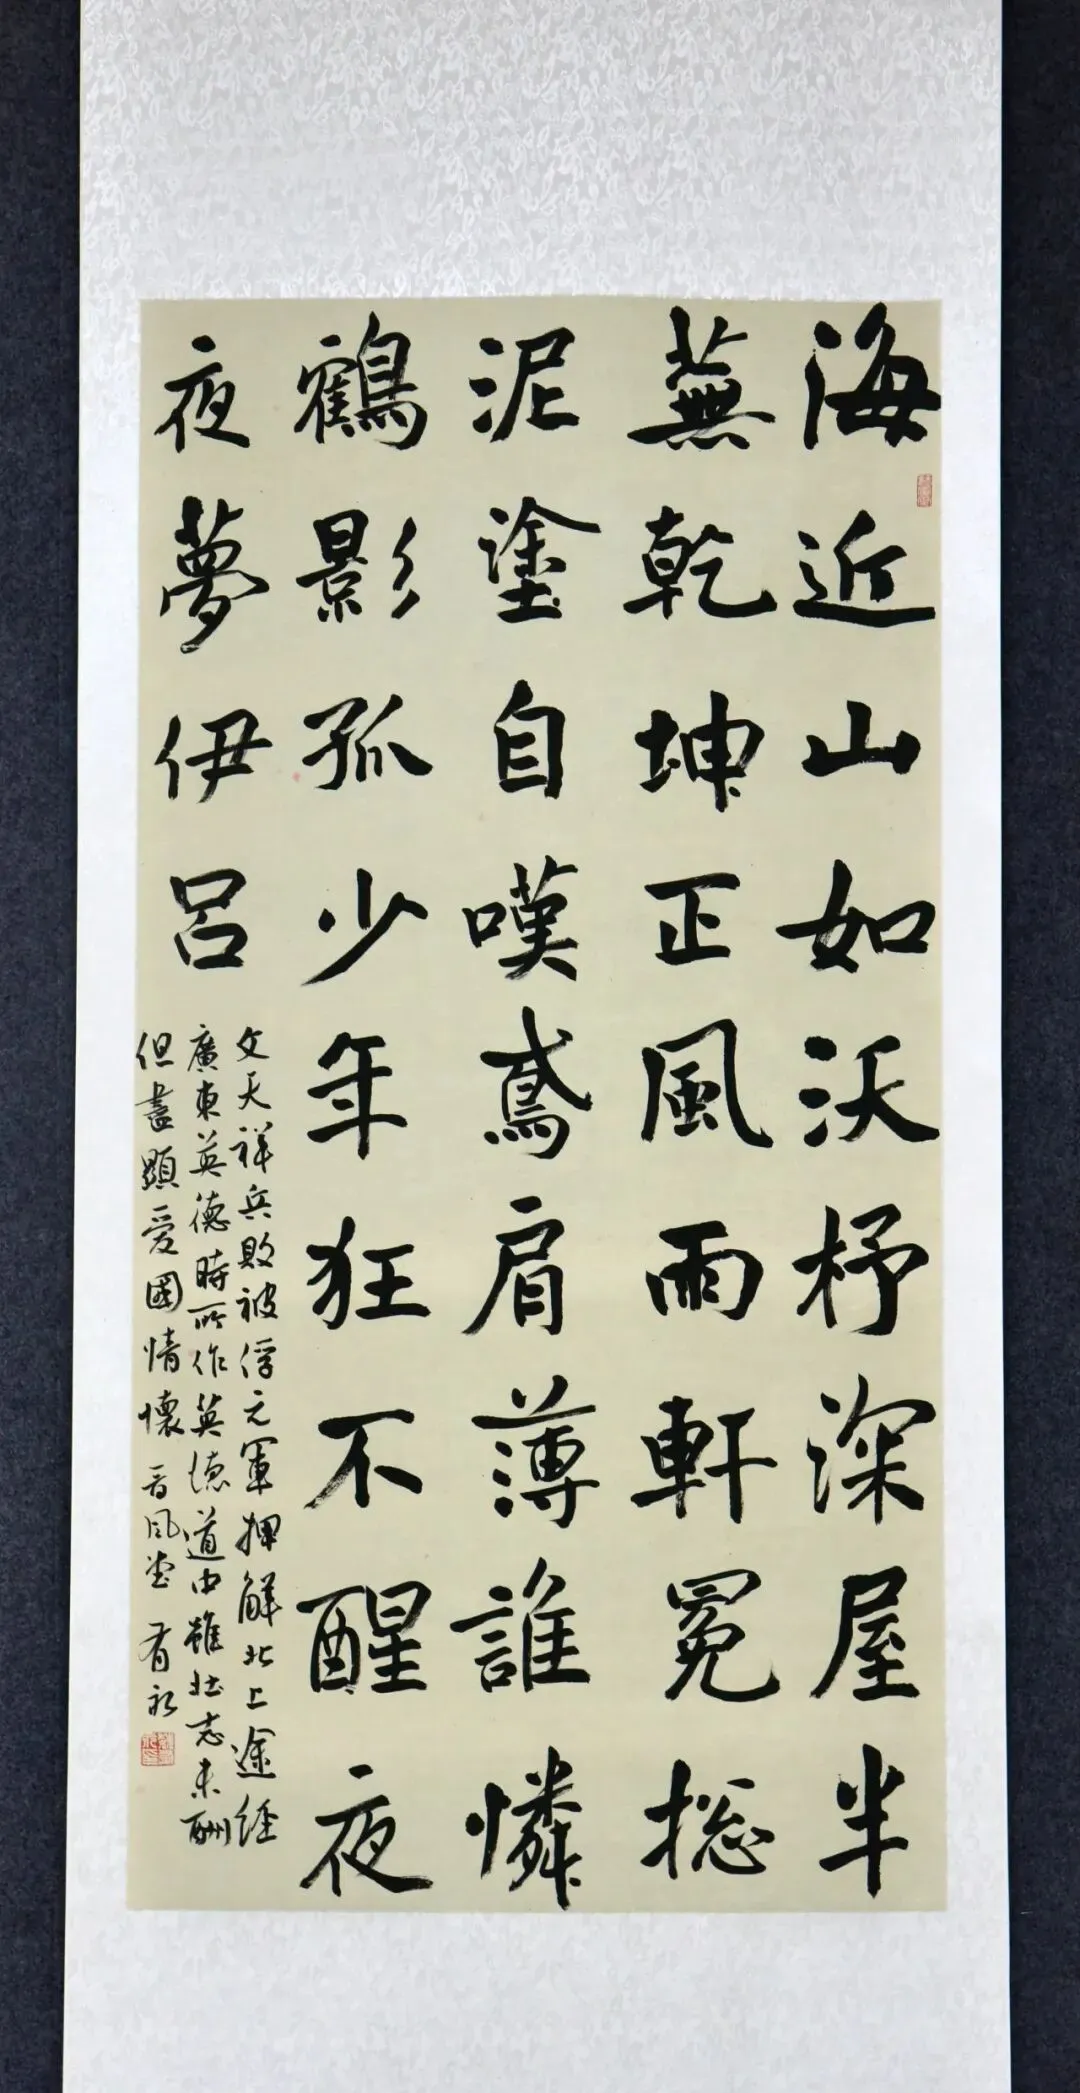 海近山如沃杼深屋半
蕪乾坤正風雨軒冕捴
泥塗自嘆鳶肩薄誰憐
鶴影孤少年狂不醒夜
夜夢伊呂
文天祥兵敗被俘元軍押解北上途經
廣東英德時所作英德道中雖壯志未酬
但盡顯愛國情懷晉風堂有永